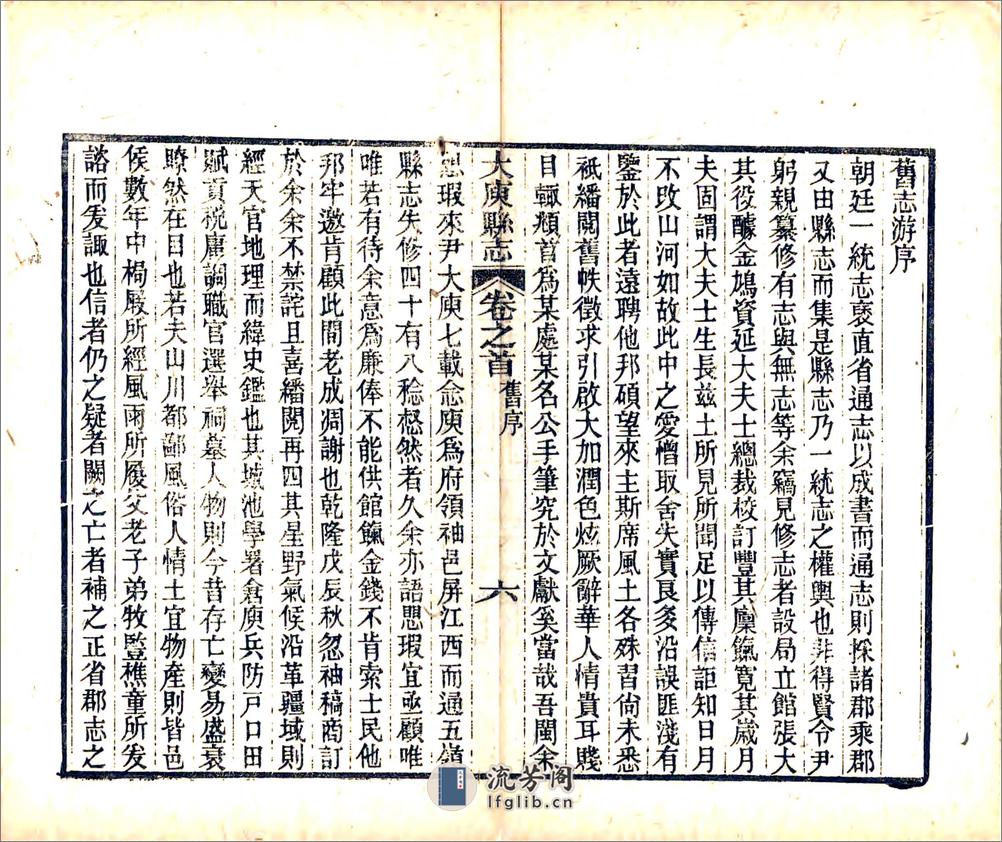 舊志游序
朝廷一統志裒直省通志以成書而通志則採諸郡乘郡
又由縣志而集是縣志乃一統志之權輿也非得賢令尹
躬親纂修有志與無志等余竊見修志者設局立館張大
其役醵金鳩資延大夫士總裁校訂豐其廩餼寬其歲月
夫固謂大夫士生長兹土所見所聞足以傳信詎知日月
不改山河如故此中之愛憎取舍失實良多沿誤匪淺有
鑒於此者遠聘他邦碩望來主斯席風土各殊習尚未悉
祇繙閱舊帙徵求引啟大加潤色炫厥辭華人情貴耳賤
目輙頫首爲某處某名公手筆究於文獻奚當哉吾閩余
大庾縣志
卷之首
舊序
六
思瑕來尹大庾七載念庾爲府領袖邑屏江西而通五嶺
縣志失修四十有八稔惄然者久余亦語思瑕宜亟顧唯
唯若有待余意爲廉俸不能供館餼金錢不肯索士民他
邦牢邀肯顧此間老成凋謝也乾隆戊辰秋忽袖稿商訂
於余余不禁詫且喜繙閱再四其星野氣候沿革疆域則
經天官地理而緯史鑑也其城池學署倉庾兵防戸口田
賦貢稅庸調職官選舉祠墓人物則今昔存亡變易盛衰
瞭然在目也若夫山川都鄙風俗人情土宜物產則皆邑
侯數年中楬厥所經風雨所履父老子弟牧豎樵童所发
諮而爰諏也信者仍之疑者闕之亡者補之正省郡志之
流芳閣
lfglib.cn